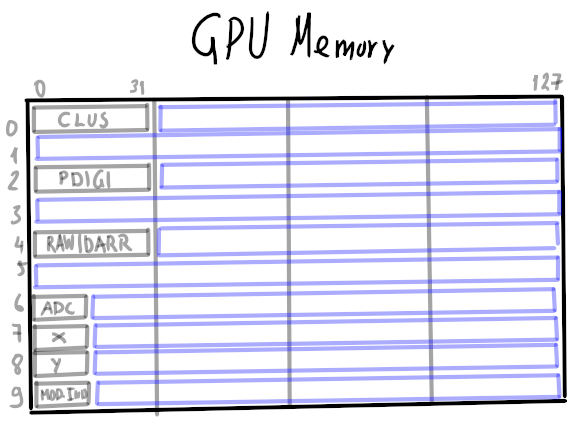 GPU Memory
0 31 127
0 CLUS
1
2 PDIGI
3
4 RAWIDARR
5
6 ADC
7 X
8 Y
9